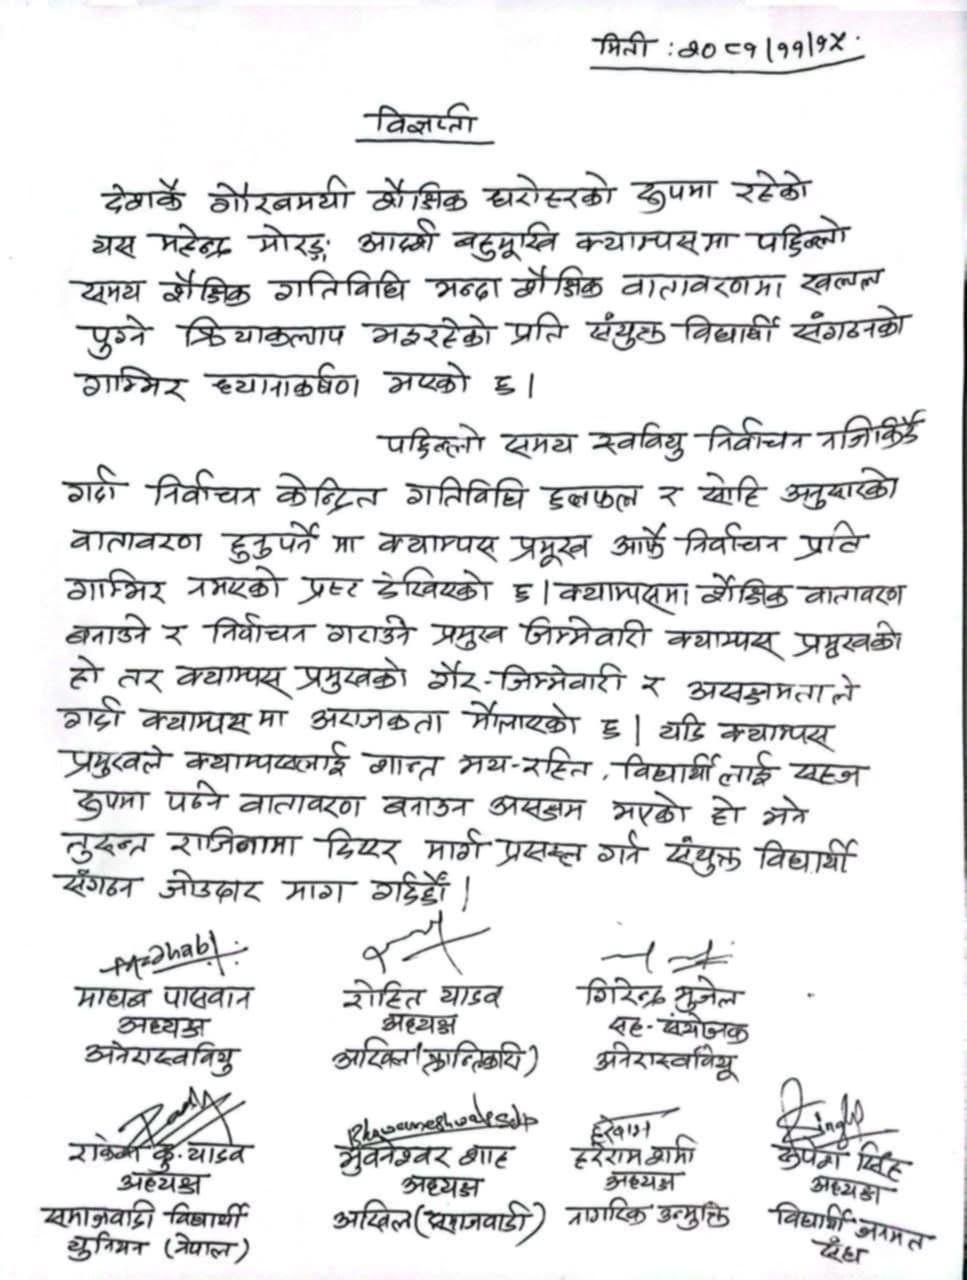 मिती : २०८१/११/१५.
विज्ञप्ती
देशकै गौरबमयी शैक्षिक धरोहरको रुपमा रहेको
यस महेन्द्र मोरङ्ग आदर्श बहुमूखि क्याम्पसमा पछिल्लो
समय शैक्षिक गतिविधि भन्दा शैक्षिक वातावरणमा खलल
पुग्ने क्रियाकलाप भइरहेको प्रति संयुक्त विद्यार्थी संगठनको
गाम्भिर ध्यानाकर्षण भएको छ।
पछिल्लो समय स्ववियु निर्वाचन नजिकिदै
गर्दा निर्वाचन केन्द्रित गतिविधि छलफल र सोहि अनुसारको
वातावरण हुनुपर्ने मा क्याम्पस प्रमूख आफै निर्वाचन प्रति
गाम्भिर नभएको प्रष्ट देखिएको छ। क्याम्पसमा शैक्षिक वातावरण
बनाउने र निर्वाचन गराउने प्रमुख जिम्मेवारी क्याम्पस प्रमुखको
हो तर क्याम्पस प्रमुखको गैर-जिम्मेवारी र असक्षमताले
गर्दा क्याम्पसमा अराजकता मौलाएको छ। यदि क्याम्पस
प्रमुखले क्याम्पसलाई शान्त भय-रहित, विद्यार्थीलाई सहज
रुपमा पढ्ने वातावरण बनाउन असक्षम भएको हो भने
तुरुन्त राजिनामा दिएर मार्ग प्रसस्त गर्न संयुक्त विद्यार्थी
संगठन जोडदार माग गर्दछौं।
माधब पासवान रोहित यादव गिरेन्द्र भुजेल
अध्यक्ष अध्यक्ष सह-संयोजक
अनेरास्ववियु अखिल (क्रान्तिकारी) अनेरास्ववियू
Bhuwaneshwar Sah हरेराम Singh
राकेश कु. यादव भुवनेश्वर शाह हरेराम शर्मा रुपेश सिंह
अध्यक्ष अध्यक्ष अध्यक्ष अध्यक्ष
समाजवादी विद्यार्थी अखिल (समाजवादी) नागरिक उन्मुक्ति विद्यार्थी जनमत
युनियन (नेपाल) संघ